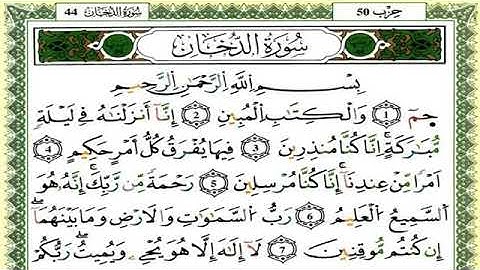 حِزْب 50
سُورَةُ الدُّخَانِ 44
سُورَةُ الدُّخَانِ
بِسْمِ اللَّهِ الرَّحْمَٰنِ الرَّحِيمِ
حمٓ ① وَالْكِتَٰبِ الْمُبِينِ ② إِنَّآ أَنزَلْنَٰهُ فِي لَيْلَةٍ
مُّبَٰرَكَةٍ ۚ إِنَّا كُنَّا مُنذِرِينَ ③ فِيهَا يُفْرَقُ كُلُّ أَمْرٍ حَكِيمٍ ④
أَمْرًا مِّنْ عِندِنَآ ۚ إِنَّا كُنَّا مُرْسِلِينَ ⑤ رَحْمَةً مِّن رَّبِّكَ ۚ إِنَّهُ هُوَ
السَّمِيعُ الْعَلِيمُ ⑥ رَبُّ السَّمَٰوَٰتِ وَالْأَرْضِ وَمَا بَيْنَهُمَآ ۖ
إِن كُنتُم مُّوقِنِينَ ⑦ لَآ إِلَٰهَ إِلَّا هُوَ يُحْيِۦ وَيُمِيتُ ۖ رَبُّكُمْ